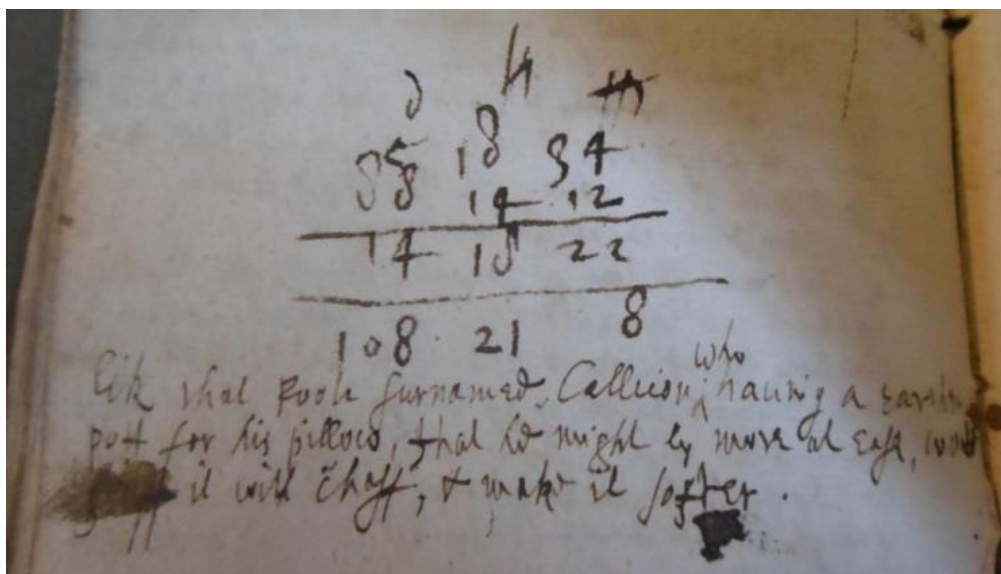 d H m
85 18 34
88 14 12
14 18 22
108 21 8
who
lik that foole surnamed Callicion, ^ having a earthn
pott for his pillow, that he might ly more at ease, would
stuff it with chaff, & make it softer.